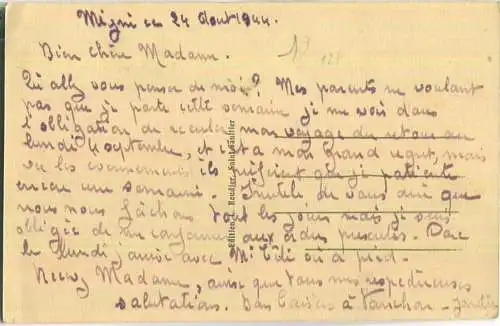 Migné ce 24 Aout 1944.
Bien chère Madame.
Qu'allez vous penser de moi? Mes parents ne voulant
pas que je parte cette semaine je me vois dans
l'obligation de reculer mon voyage du retour au
lundi 4 septembre, et c'est a mon grand regret, mais
vu les évenements ils préfèrent que je patiente
encore une semaine. Inutile de vous dire que
nous nous fâchons tout les jours mais je suis
obligée de me conformer aux ordres Donc
le lundi j'arrive avec Mr où à pied.
Recevez Madame, ainsi que tous mes respectueuses
salutations. Bons baisers à
Edition Reudier, Saint-Gaultier